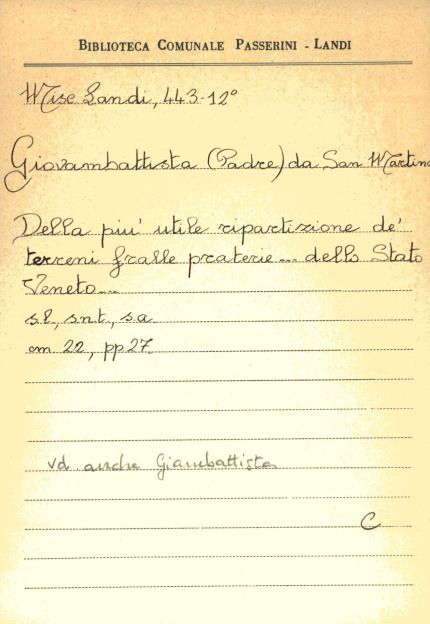 BIBLIOTECA COMUNALE PASSERINI - LANDI
Misc Landi, 443-12°
Giovambattista (Padre) da San Martino
Della piu' utile ripartizione de'
terreni fralle praterie ... dello Stato
Veneto...
s.l., s.n.t., s.a.
cm 22, pp 27
vd. anche Giambattista
C